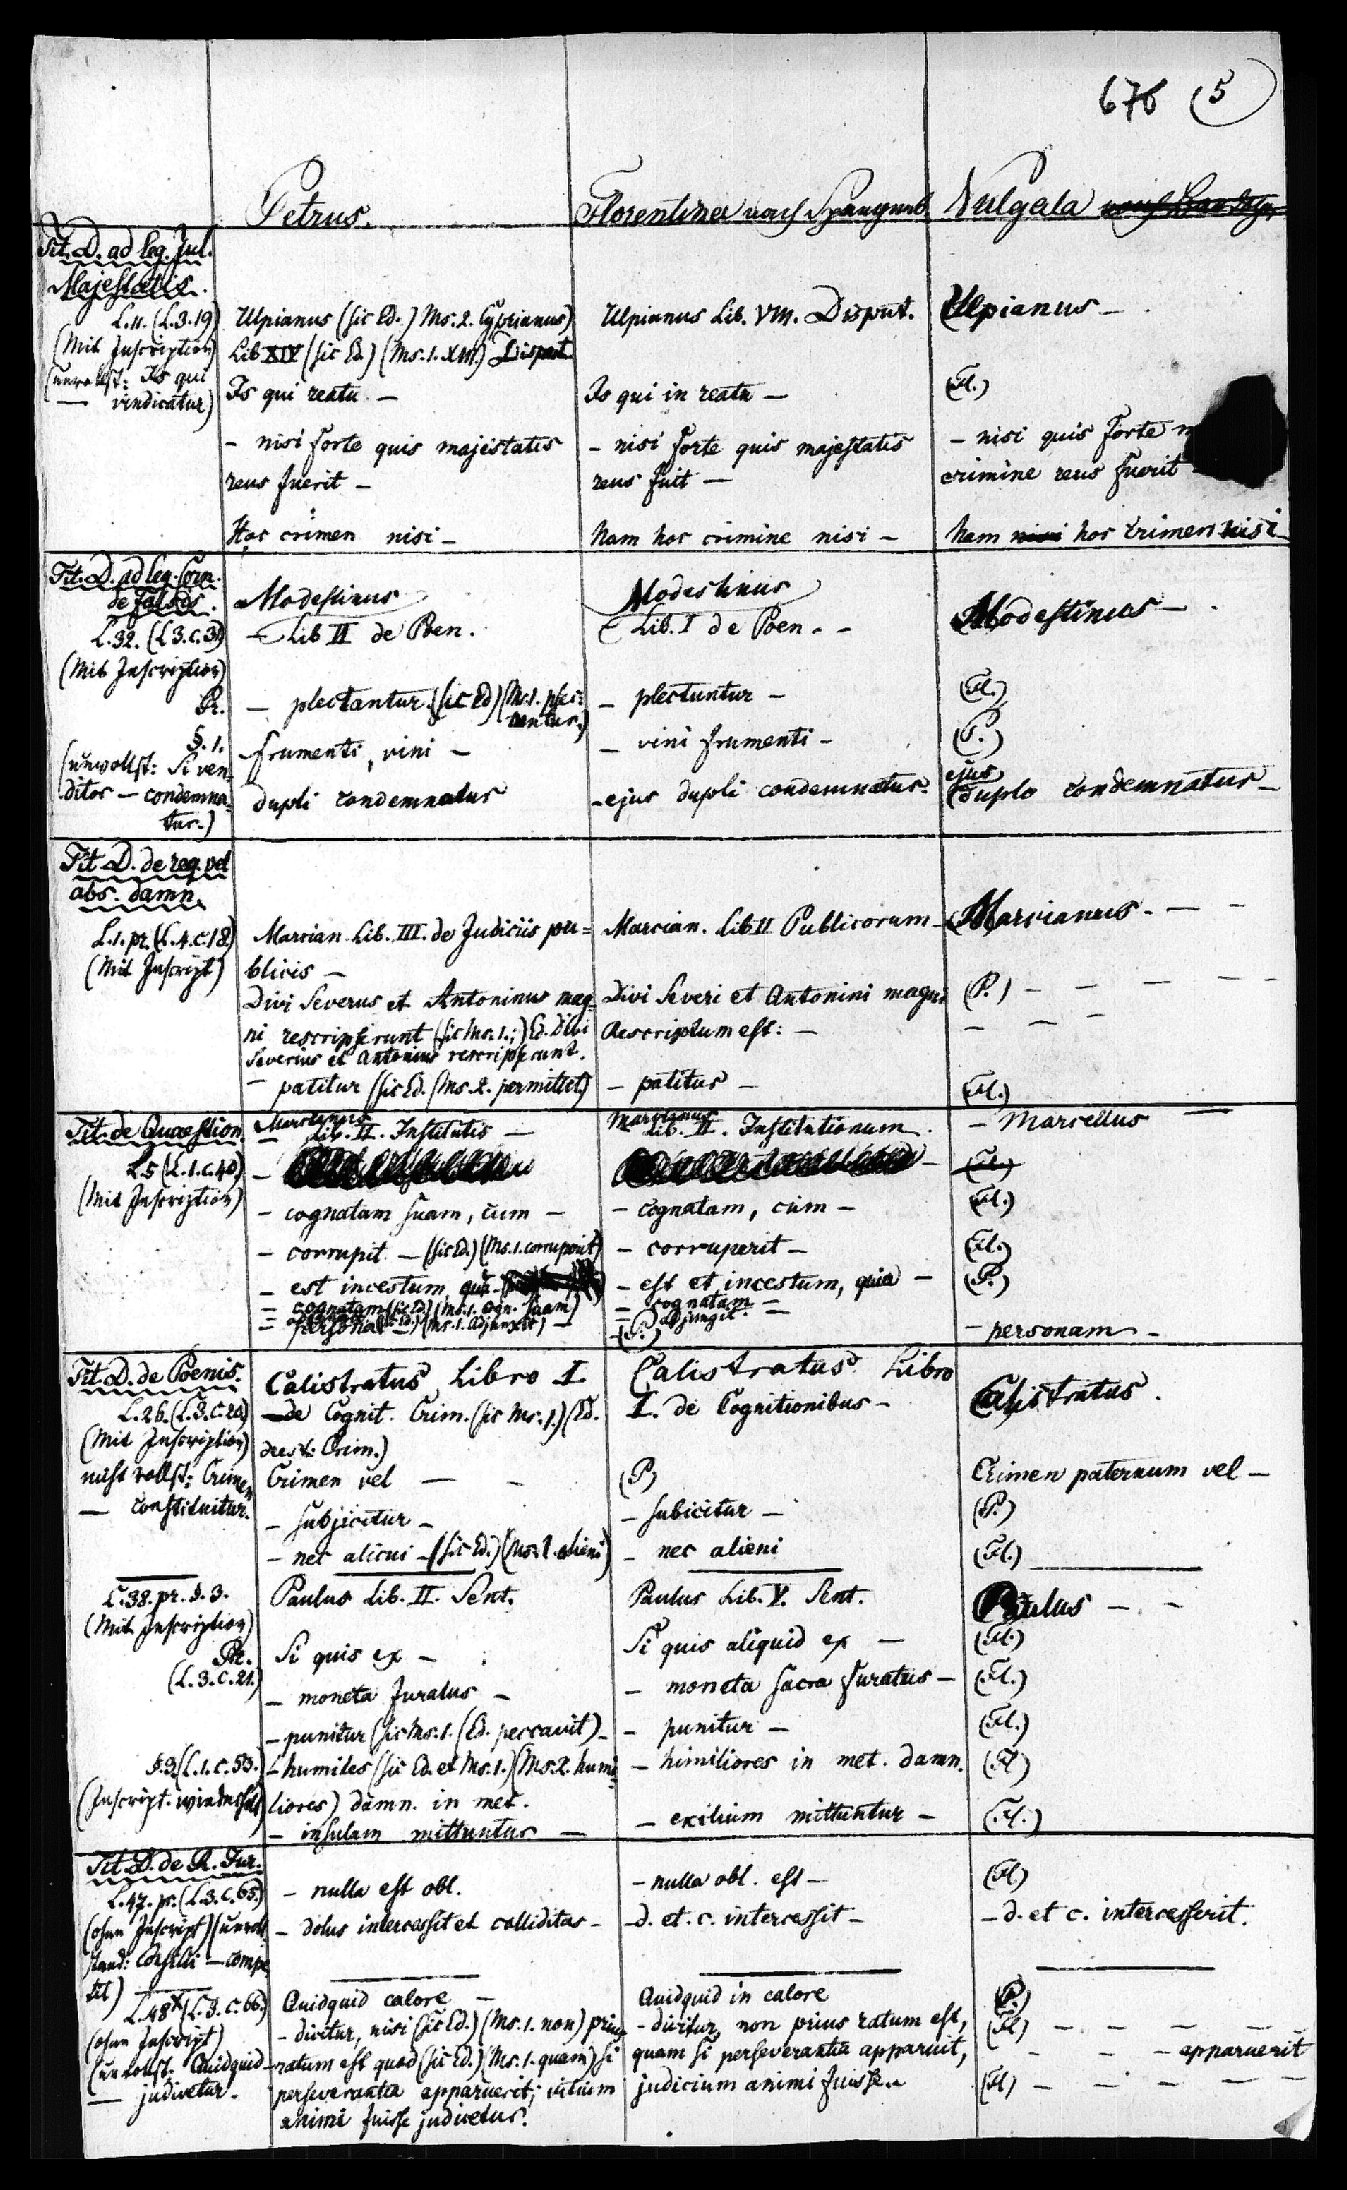 676 (5)
Petrus.
Florentina nach Spangenb.
Vulgata
Tit. D. ad leg. Jul.
Majestatis.
L. 11. (L. 3. 19)
(Mit Inscription)
(unvollst: Is qui
— vindicatur)
Ulpianus (sic Ed.) Ms. 2. Cyprianus)
Lib XIV (sic Ed.) (Ms. 1. XIII) Disput.
Is qui reatu —
- nisi forte quis majestatis
reus fuerit —
Hoc crimen nisi —
Ulpianus Lib. VIII. Disput.
Is qui in reatu —
- nisi forte quis majestatis
reus fuit —
Nam hoc crimine nisi —
Ulpianus —
(Fl.)
- nisi quis forte
crimine reus fuerit -
Nam hoc crimen nisi -
Tit. D. ad leg. Corn.
de falsis.
L. 32. (L 3. c. 39)
(Mit Inscription)
Pr.
§. 1.
(unvollst: Si ven-
ditor — condemna-
tur.)
Modestinus
- Lib II de Poen.
- plectantur (sic Ed) (Ms. 1. plec-
tentur.)
- frumenti, vini —
dupli condemnatus
Modestinus
Lib. I de Poen. -
- plectuntur -
- vini frumenti -
- ejus dupli condemnatus.
Modestinus -
(Fl.)
(P.)
ejus
duplo condemnatus -
Tit D. de req. vel
abs. damn.
L. 1. pr. (L. 4. c. 18)
(Mit Inscript)
Marcian Lib. III. de Judiciis pu-
blicis —
Divi Severus et Antoninus mag-
ni rescripserunt (sic Ms. 1.;) Ed. Divi
Severius et Antonius rescripserunt.
- patitur (sic Ed. (Ms. 2. permittet)
Marcian. Lib II Publicorum -
Divi Severi et Antonini magni
Rescriptum est: —
- patitur -
Marcianus. — -
(P.) - - — —
- — -
(Fl.)
Tit. de Quaestion.
L. 5 (L. 1. c. 40)
(Mit Inscription)
Marcianus
- Lib. II. Institutis —
- cognatam suam, cum —
- corrupit — (sic Ed.) (Ms. 1. corruperit)
- est incestum, quia
- cognatam (sic Ed.) (Ms. 1. cogn. suam)
- personas
Marcianus
Lib. II. Institutionum
- cognatam, cum —
- corruperit —
- est et incestum, quia —
- cognatam —
- adjungit -
(P.)
- Marcellus —
(Fl.)
(Fl.)
(P.)
- personam -
Tit. D. de Poenis.
L. 26. (L. 3. c. 20)
(Mit Inscription)
nicht vollst: Crimen
— constituitur.
Calistratus Libro I
de Cognit. Crim. (sic Ms. 1.) (Ed.
deest: Crim.)
Crimen vel — -
- subjicitur -
- nec alicui - (sic Ed.) (Ms. 1. alieni)
Calistratus Libro
I. de Cognitionibus -
(P)
- subicitur —
- nec alieni
Calistratus.
Crimen paternum vel -
(P.)
(Fl.)
L. 38. pr. §. 3.
(Mit Inscription)
Pr.
(L. 3. c. 21.)
Paulus Lib. II. Sent.
Si quis ex -
- moneta furatus -
- punitur (sic Ms. 1. (Ed. peccavit) -
Paulus Lib. V. Sent.
Si quis aliquid ex —
- moneta sacra furatus -
- punitur -
Paulus - -
(Fl.)
(Fl.)
(Fl.)
§. 3. (L. 1. c. 53.)
- humiles (sic Ed. et Ms. 1.) (Ms. 2. humi-
liores) damn. in met.
- insulam mittuntur —
- himiliores in met. damn.
- exilium mittuntur -
(Fl)
(Fl.)
Tit. D. de R. Jur.
L. 47. pr. (L. 3. c. 65.)
(ohne Inscript) (unvoll-
stand: Consilii — compe-
tit)
- nulla est obl.
- dolus intercessit et calliditas -
- nulla obl. est -
- d. et. c. intercessit -
(Fl)
- d. et c. intercesserit.
L. 48 (L. 3. c. 66.)
(ohne Inscript)
(unvollst. Quidquid
— judicetur.
Quidquid calore —
- dicitur, nisi (sic Ed.) (Ms. 1. non) prius
ratum est quod (sic Ed.) (Ms. 1. quam) si
perseverantia apparuerit; vitium
animi fuisse judicetur.
Quidquid in calore
- dicitur, non prius ratum est,
quam si perseverantia apparuit,
judicium animi fuisse.
(P.)
(Fl) - - - - -
- - - apparuerit
(Fl) - - - - -